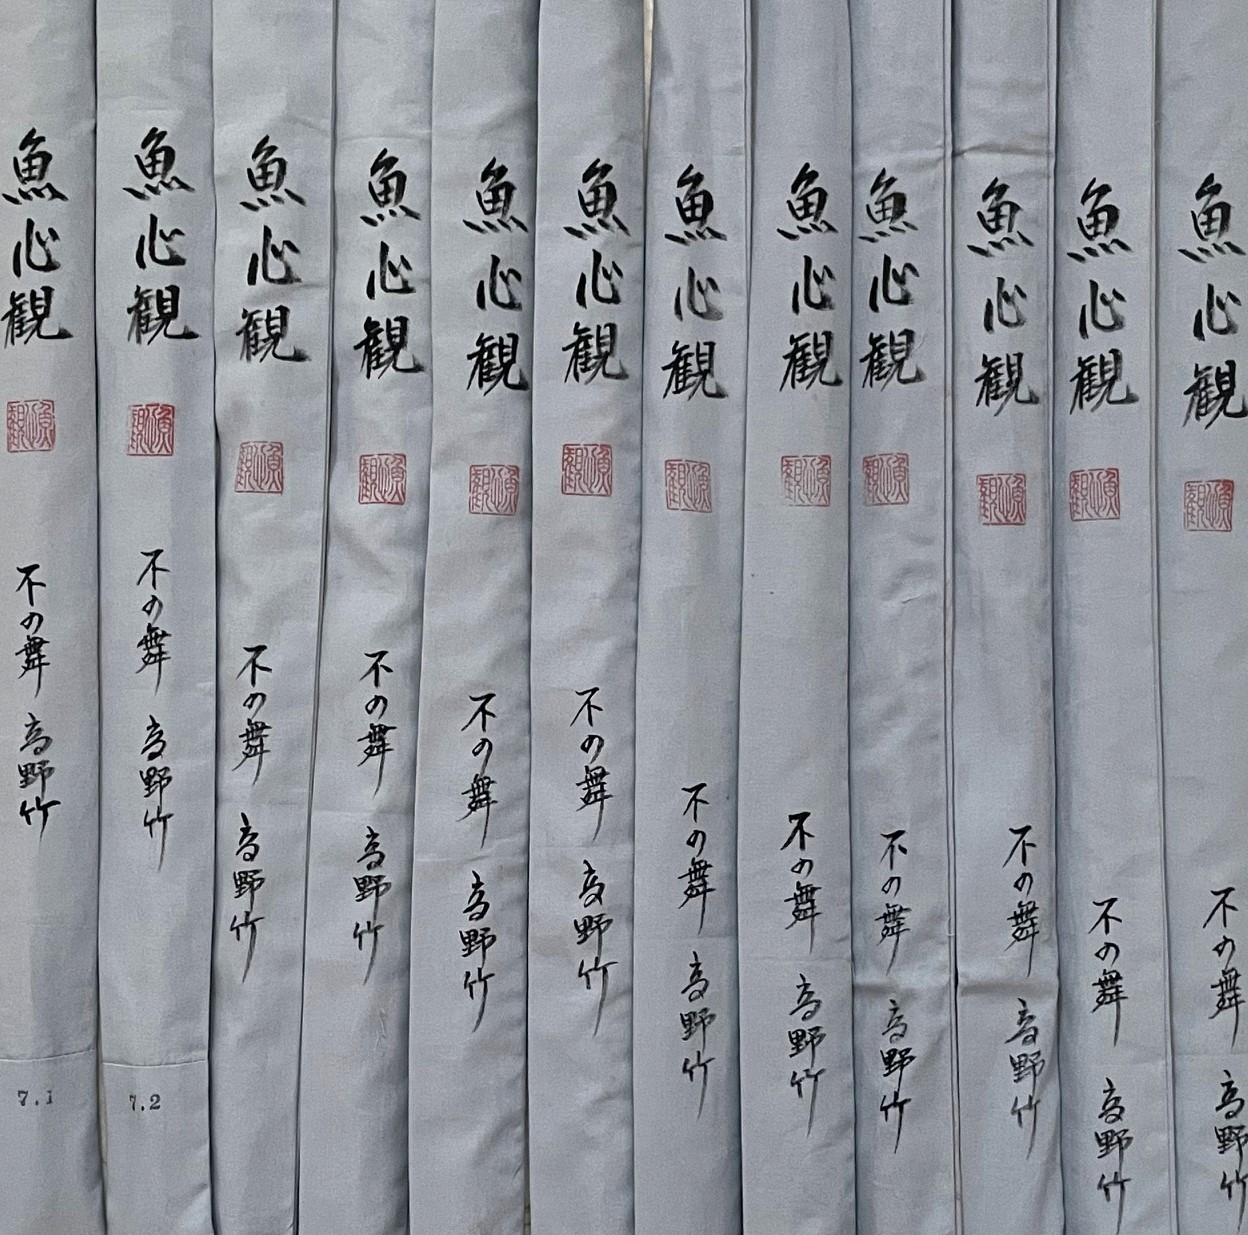 魚心観
不の舞 高野竹
7.1
魚心観
不の舞 高野竹
7.2
魚心観
不の舞 高野竹
魚心観
不の舞 高野竹
魚心観
不の舞 高野竹
魚心観
不の舞 高野竹
魚心観
不の舞 高野竹
魚心観
不の舞 高野竹
魚心観
不の舞 高野竹
魚心観
不の舞 高野竹
魚心観
不の舞 高野竹
魚心観
不の舞 高野竹